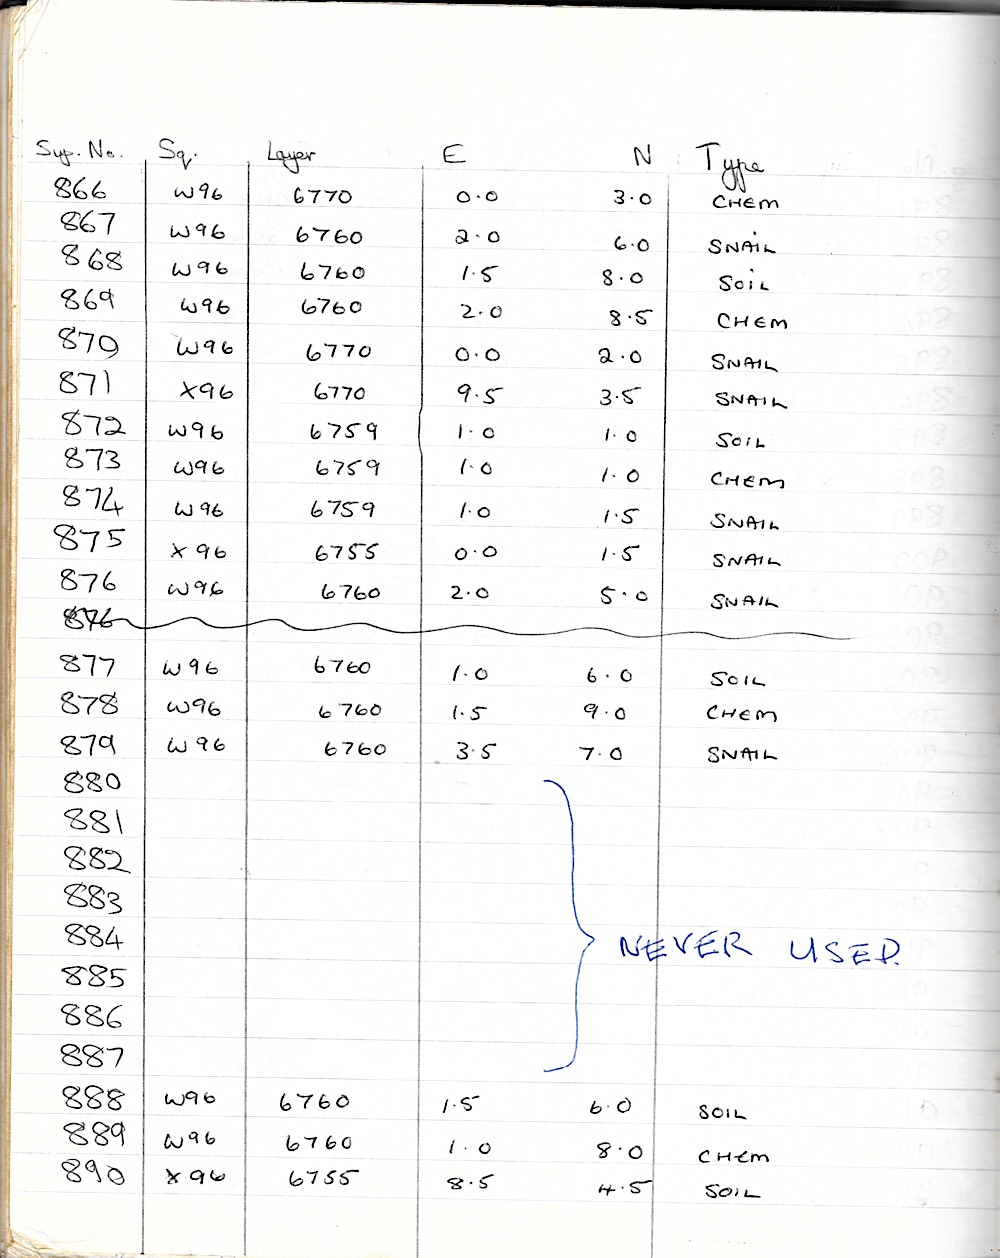 Sup. No. Sq. Layer E N Type
866 W96 6770 0.0 3.0 CHEM
867 W96 6760 2.0 6.0 SNAIL
868 W96 6760 1.5 8.0 SOIL
869 W96 6760 2.0 8.5 CHEM
870 W96 6770 0.0 2.0 SNAIL
871 X96 6770 9.5 3.5 SNAIL
872 W96 6759 1.0 1.0 SOIL
873 W96 6759 1.0 1.0 CHEM
874 W96 6759 1.0 1.5 SNAIL
875 X96 6755 0.0 1.5 SNAIL
876 W96 6760 2.0 5.0 SNAIL
876
877 W96 6760 1.0 6.0 SOIL
878 W96 6760 1.5 9.0 CHEM
879 W96 6760 3.5 7.0 SNAIL
880
881
882
883
884 NEVER USED.
885
886
887
888 W96 6760 1.5 6.0 SOIL
889 W96 6760 1.0 8.0 CHEM
890 X96 6755 8.5 4.5 SOIL